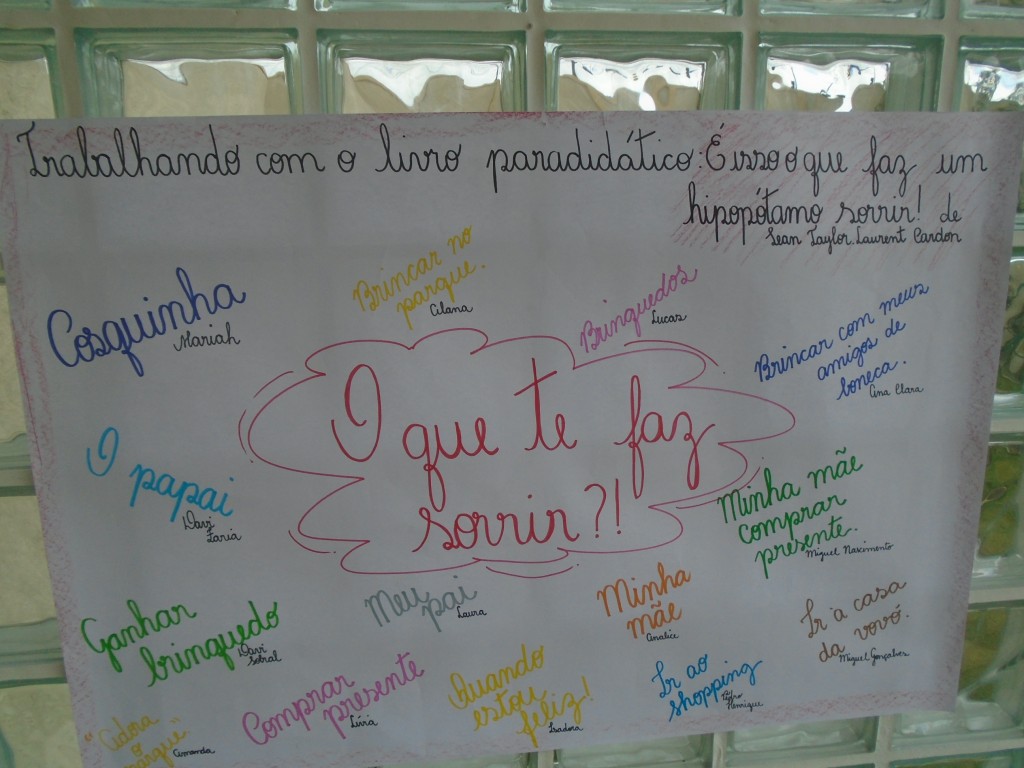 Trabalhando com o livro paradidático: É isso o que faz um
hipopótamo sorrir! de
Sean Taylor. Laurent Cardon
Cosquinha
Mariah
Brincar no
parque.
Cilana
Brinquedos
Lucas
Brincar com meus
amigos de
boneca.
Ana Clara
O que te faz
sorrir?!
O papai
Davi
Faria
Minha mãe
comprar
presente.
Miguel Nascimento
Ganhar
brinquedo
Davi
Sobral
Meu
pai
Laura
Minha
mãe
Analice
Ir a casa
da vovó.
Miguel Gonçalves
"adora
o
parque"
Amanda
Comprar
presente
Lívia
Quando
estou
feliz!
Isadora
Ir ao
shopping
Henrique